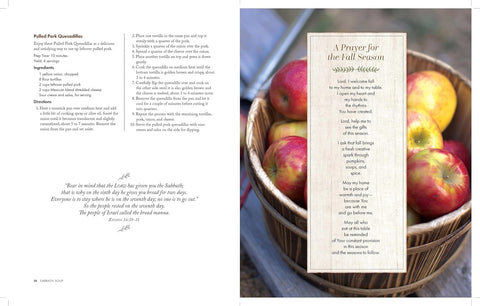 Pulled Pork Quesadillas
Enjoy these Pulled Pork Quesadillas as a delicious
and satisfying way to use up leftover pulled pork.
Prep Time: 10 minutes
Yield: 4 servings
Ingredients
1 yellow onion, chopped
8 flour tortillas
2 cups leftover pulled pork
2 cups Mexican blend shredded cheese
Sour cream and salsa, for serving
Directions
1. Heat a nonstick pan over medium heat and add
a little bit of cooking spray or olive oil. Sauté the
onion until it becomes translucent and slightly
caramelized, about 5 to 7 minutes. Remove the
onion from the pan and set aside.
2. Place one tortilla in the same pan and top it
evenly with a quarter of the pork.
3. Sprinkle a quarter of the onion over the pork.
4. Spread a quarter of the cheese over the onion.
5. Place another tortilla on top and press it down
gently.
6. Cook the quesadilla on medium heat until the
bottom tortilla is golden brown and crispy, about
3 to 4 minutes.
7. Carefully flip the quesadilla over and cook on
the other side until it is also golden brown and
the cheese is melted, about 3 to 4 minutes more.
8. Remove the quesadilla from the pan and let it
cool for a couple of minutes before cutting it
into quarters.
9. Repeat the process with the remaining tortillas,
pork, onion, and cheese.
10. Serve the pulled pork quesadillas with sour
cream and salsa on the side for dipping.
"Bear in mind that the LORD has given you the Sabbath;
that is why on the sixth day he gives you bread for two days.
Everyone is to stay where he is on the seventh day; no one is to go out."
So the people rested on the seventh day.
The people of Israel called the bread manna.
Exodus 16:29–31
SABBATH SOUP
A Prayer for
the Fall Season
Lord, I welcome fall
to my home and to my table.
I open my heart and
my hands to
the rhythms
You have created.
Lord, help me to
see the gifts
of this season.
I ask that fall brings
a fresh creative
spark through
pumpkins,
soups,
and spice.
May my home
be a place of
warmth and joy—
because You
are with me
and go before me.
May all who
eat at this table
be reminded
of Your constant provision
in this season
and the seasons to follow.